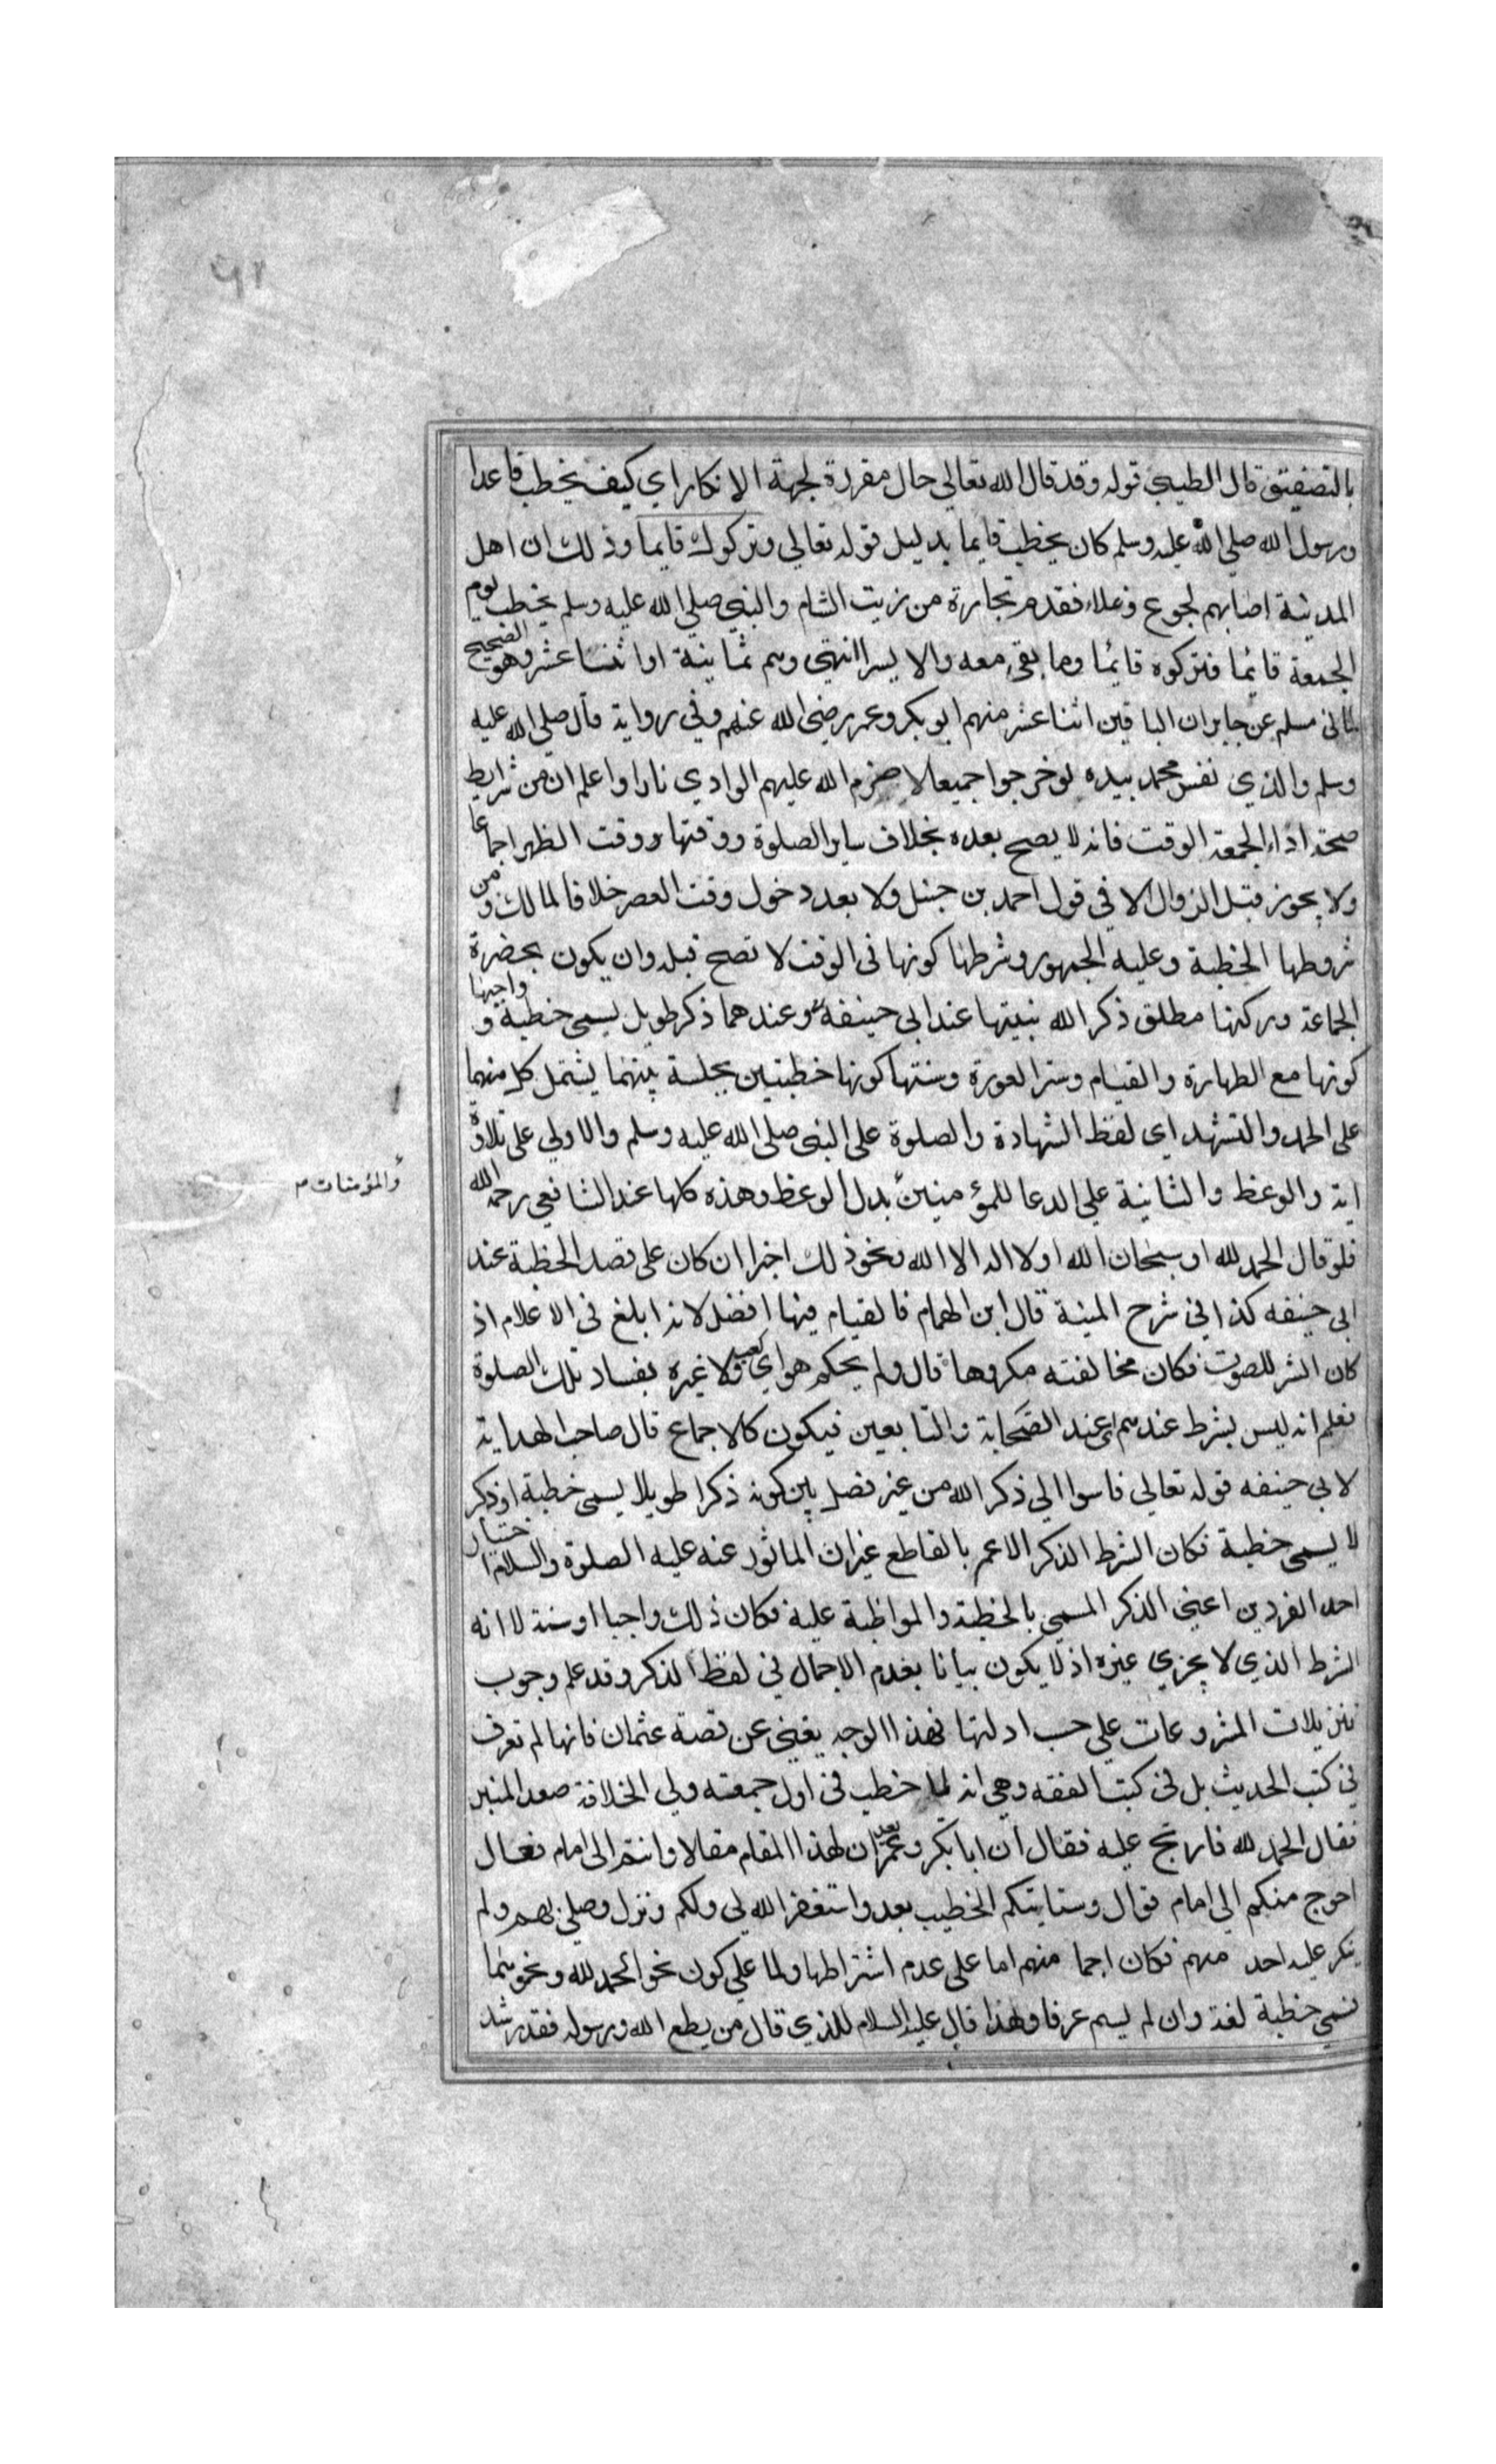 ٩٢
بالتصفيق قال الطيبي قوله وقد قال الله تعالى حال مقررة لجهة الانكار اي كيف يخطب قاعدا
ورسول الله صلى الله عليه وسلم كان يخطب قايما بدليل قوله تعالى وتركوك قايما وذلك ان اهل
المدينة اصابهم لجوع وغلاء فقدم تجارة من زيت الشام والنبي صلى الله عليه وسلم يخطب يوم
الجمعة قائما فتركوه قائما وما بقي معه والا يسرا انتهى وهم ثمانية او اثنا عشر وهو الصحيح
لما في مسلم عن جابر ان الباقين اثنا عشر منهم ابو بكر وعمر رضي الله عنهم وفي رواية قال صلى الله عليه
وسلم والذي نفس محمد بيده لو خرجوا جميعا لاضرم الله عليهم الوادي نارا واعلم ان من شرايط
صحة اداء الجمعة الوقت فانه لا يصح بعده بخلاف ساير الصلوة ووقتها ووقت الظهر اجماعا
ولا يجوز قبل الزوال الا في قول احمد بن حنبل ولا بعد دخول وقت العصر خلافا لمالك ومن
شروطها الخطبة وعليه الجمهور وشرطها كونها في الوقت لا تصح قبله وان يكون بحضرة
الجماعة وركنها مطلق ذكر الله بنيتها عند ابي حنيفه وعندهما ذكر طويل يسمى خطبة وواجبها
كونها مع الطهارة والقيام وستر العورة وسنتها كونها خطبتين بجلسة بينهما يشتمل كل منهما
على الحمد والتشهد اي لفظ الشهادة والصلوة على النبي صلى الله عليه وسلم والاولى على تلاوة
اية والوعظ والثانية على الدعا للمؤمنين بدل الوعظ وهذه كلها عند الشافعي رحمه الله
والمؤمنات م
فلو قال الحمد لله او سبحان الله او لا اله الا الله ونحو ذلك اجزا ان كان على قصد الخطبة عند
ابي حنيفه كذا في شرح المنية قال ابن الهمام فالقيام فيها افضل لانه ابلغ في الاعلام اذ
كان انشر للصوت فكان مخالفته مكروها قال ولم يحكم هو اي كعب ولا غيره بفساد تلك الصلوة
فعلم انه ليس بشرط عندهم اي عند الصحابة والتابعين فيكون كالاجماع قال صاحب الهداية
لابي حنيفه قوله تعالى فاسوا الى ذكر الله من غير فصل بين كونه ذكرا طويلا يسمى خطبة او ذكر
لا يسمى خطبة فكان الشرط الذكر الاعم بالقاطع غير ان الماثور عنه عليه الصلوة والسلام اختيار
احد الفردين اعني الذكر المسمى بالخطبة والمواظبة عليه فكان ذلك واجبا او سنة لا انه
الشرط الذي لا يجزي غيره اذ لا يكون بيانا بعدم الاجمال في لفظ الذكر وقد علم وجوب
تنزيلات المشروعات على حسب ادلتها فهذا الوجه يغني عن قصة عثمان فانها لم تعرف
في كتب الحديث بل في كتب الفقه وهي انه لما خطب في اول جمعته ولي الخلافة صعد المنبر
فقال الحمد لله فارتج عليه فقال ان ابا بكر وعمر يعد ان لهذا المقام مقالا وانتم الى امام فعال
احوج منكم الى امام قوال وستاتيكم الخطيب بعد واستغفر الله لي ولكم ونزل وصلى بهم ولم
ينكر عليه احد منهم فكان اجما منهم اما على عدم اشتراطها ولما على كون نحو الحمد لله ونحو شما
تسمى خطبة لغة وان لم يسم عرفا ولهذا قال عليه السلام للذي قال من يطع الله ورسوله فقد رشد